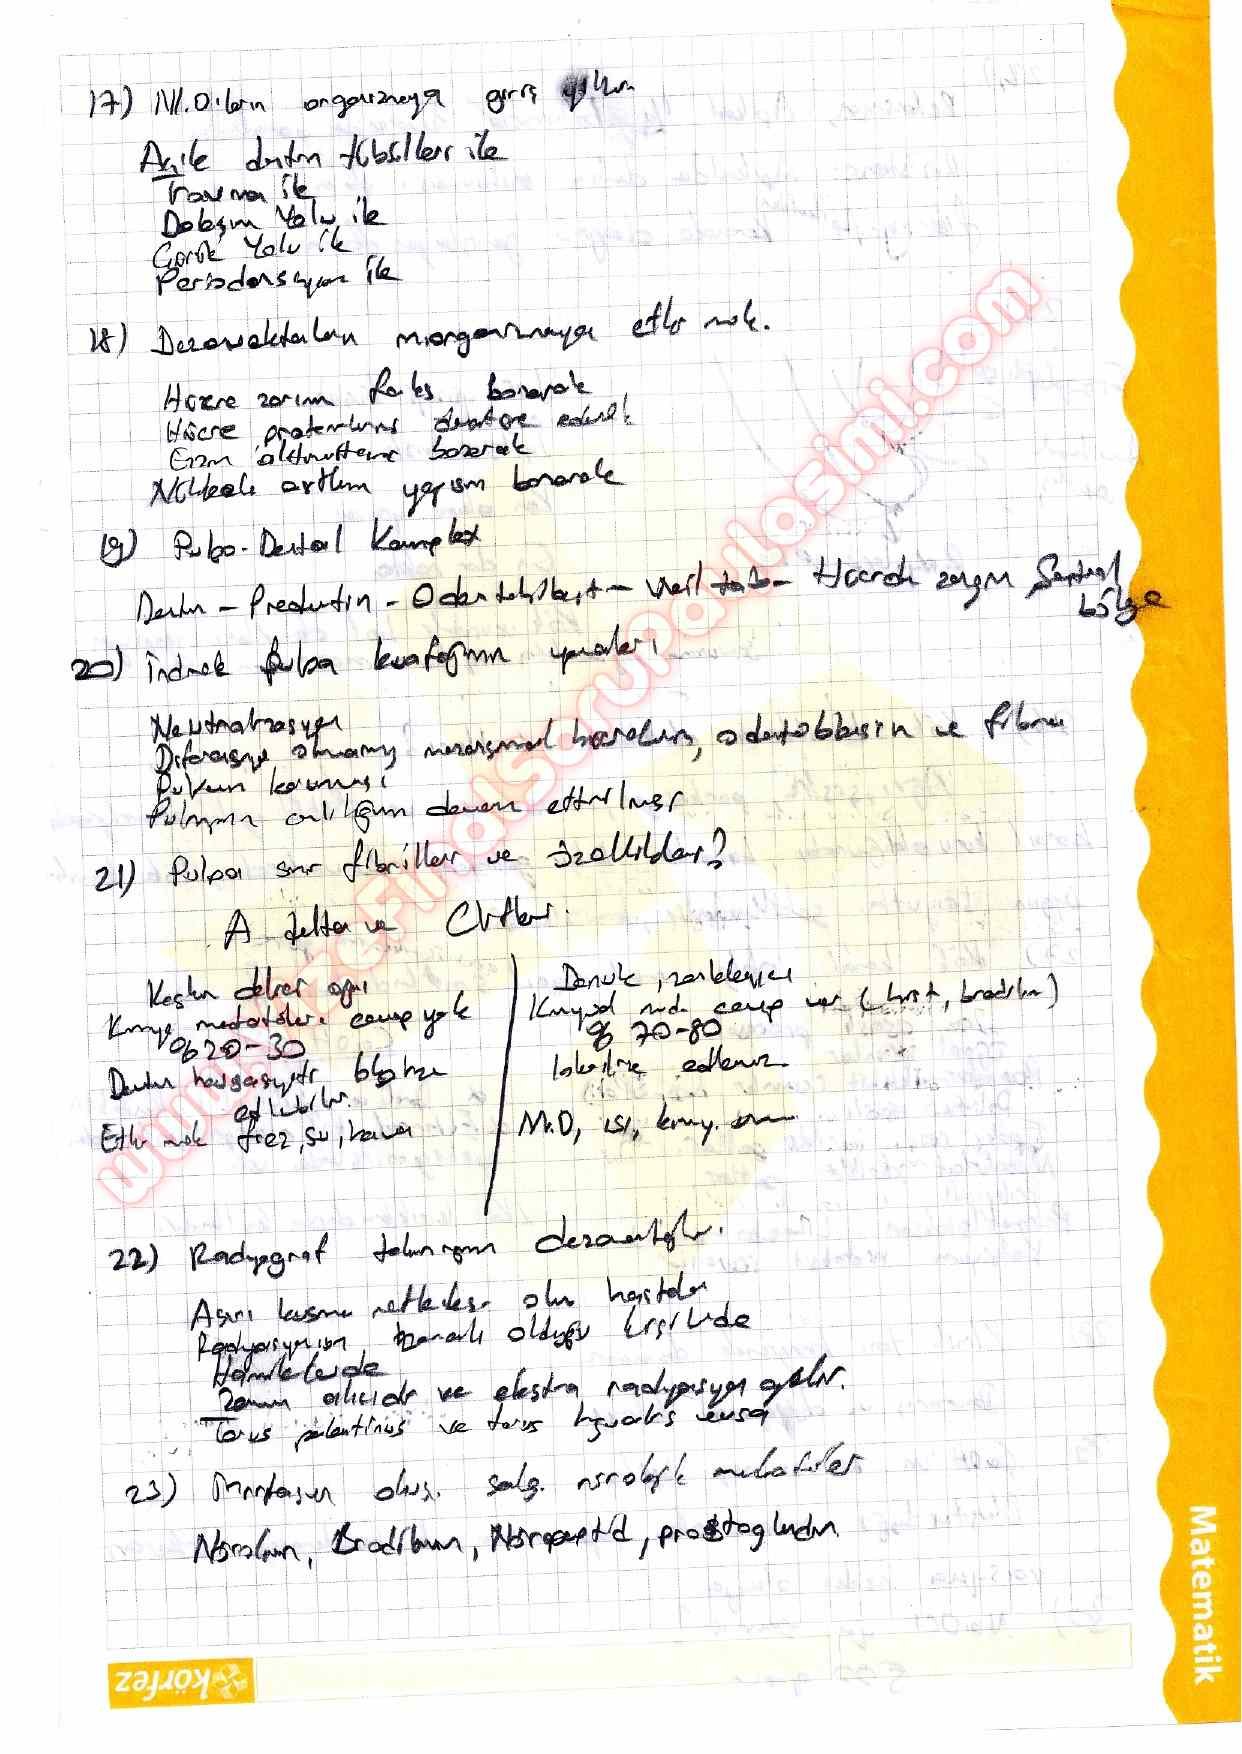 17) M.O'ların organizmaya giriş yolları
Açık dentin tübülleri ile
Travma ile
Dolaşım Yolu ile
Çürük Yolu ile
Periodonsiyum ile
18) Dezenfektanların etki mek.
Hücre zarının bozarak
Hücre proteinlerini denatüre ederek
Enzim bozarak
Nükleik asitlerin yapısını bozarak
19) Pulpo-Dental Kompleks
Dentin - Predentin - Odontoblast - Weil tab - Hücreden zengin Santral bölge
20) İndirek pulpa kuafajının yararları
Neutralizasyon
Diferansiye olmamış mezenşimal hücrelerin, odontoblastın ve
Pulpanın korunması
Pulpanın canlılığının devam ettirilmesi
21) Pulpa sinir fibrilleri ve özellikleri?
A delta ve C lifleri.
Keskin delici ağrı
Kimya. mediatörlere cevap yok
%20-30
Dentin hassasiyeti
edilebilir.
Etki mek frez, su, hava
Donuk, zonklayıcı
Kimyasal med. cevap var (hist, bradikin)
% 70-80
lokalize edilemez.
M.O, ısı, kimy.
22) Radyograf tekniğinin dezavantajları.
Aşırı kusma refleksi olan hastalar
Radyasyonun zararlı olduğu kişilerde
Hamilelerde
Zaman alıcıdır ve ekstra radyasyon gelir.
Torus palantinus ve torus varsa
23) oluş. salg. nörolojik mediatörler
Nörokinin, Bradikinin, Nöropeptid, prostaglandin
www.VizeFinalSoruPaylasimi.com
Matematik
körfez